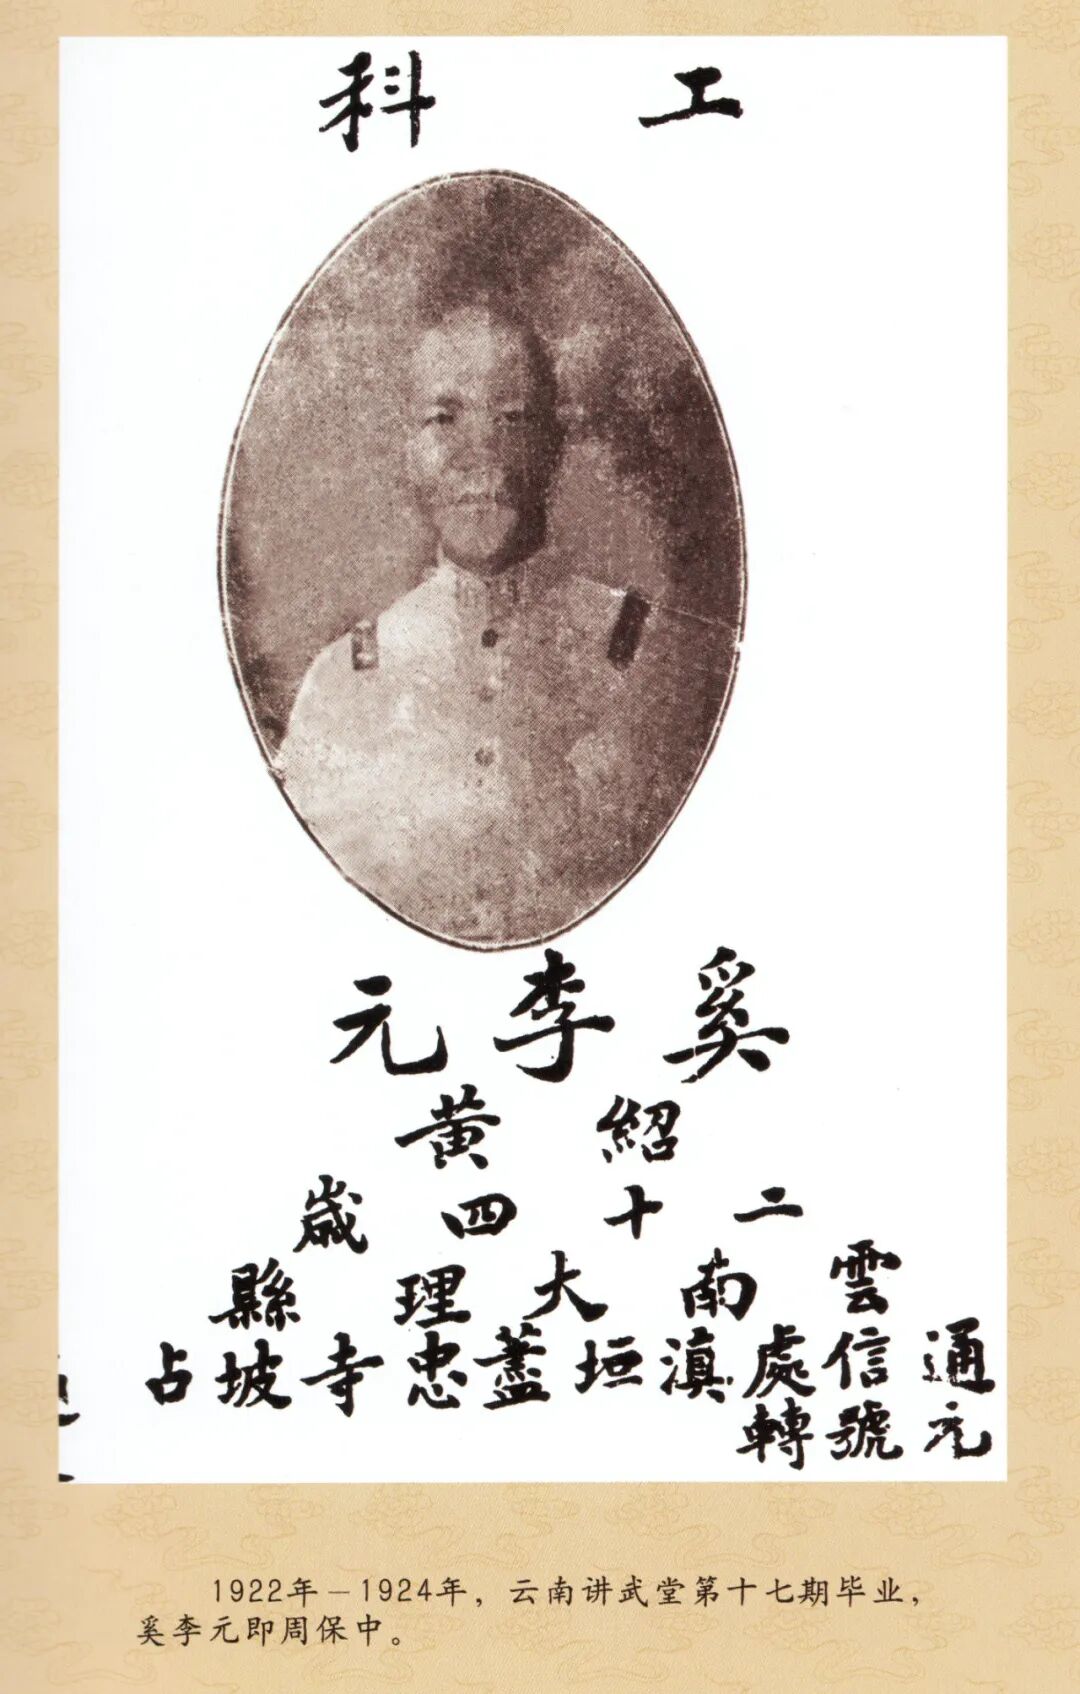 工科
奚李元
紹黃
二十四歲
雲南大理縣
通信處滇垣藎忠寺坡占
元號轉
1922年－1924年，云南讲武堂第十七期毕业，
奚李元即周保中。